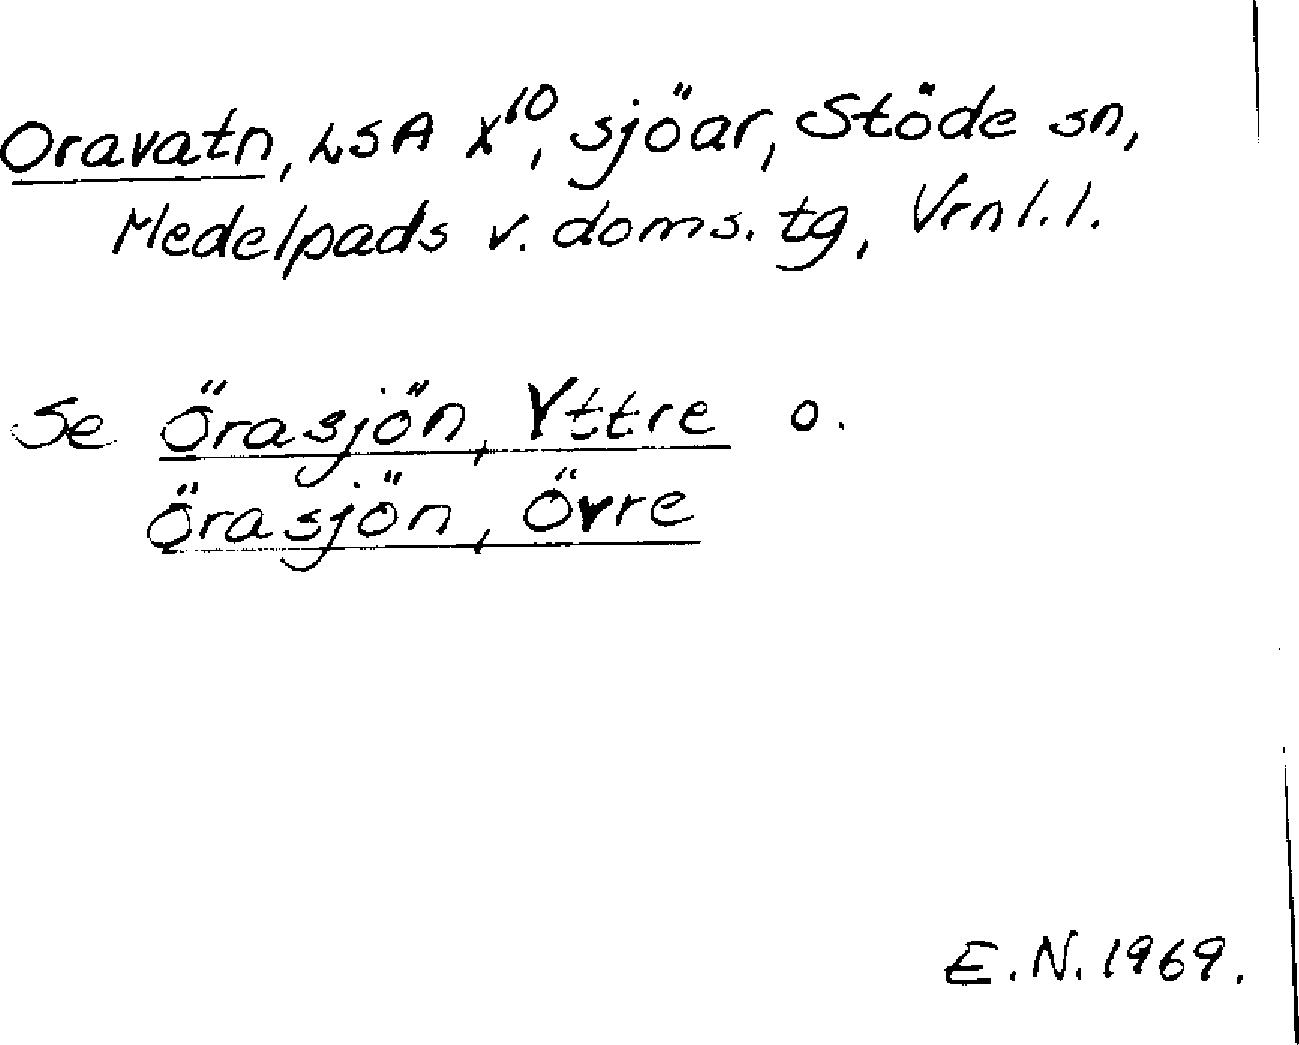 Oravatn, LSA X¹⁰, sjöar, Stöde sn,
Medelpads v. doms. tg, Vrnl. l.
Se Örasjön, Yttre o.
Örasjön, Övre
E. N. 1969.